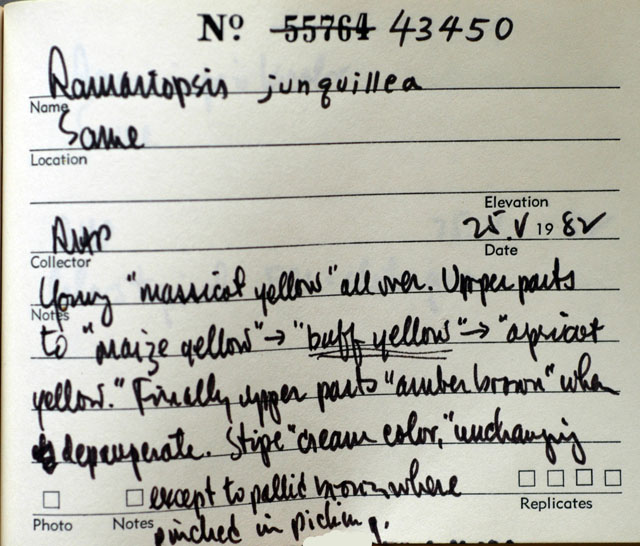 Nº 55764 43450
Ramariopsis junquillea
Name
Same
Location
Elevation
25 V 1982
Date
Collector
Young "massicot yellow" all over. Upper parts
Notes
to "maize yellow" → "buff yellow" → "apricot
yellow." Finally upper parts "amber brown" when
depauperate. Stipe "cream color," unchanging
except to pallid brown where
pinched in picking.
Photo Notes Replicates